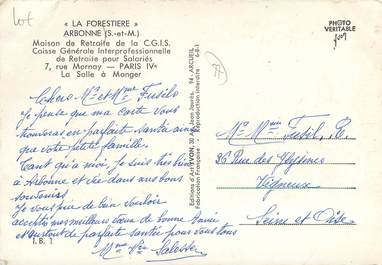 lot
« LA FORESTIERE »
ARBONNE (S.-et-M.)
Maison de Retraite de la C.G.I.S.
Caisse Générale Interprofessionnelle
de Retraite pour Salariés
7, rue Mornay — PARIS IVe
La Salle à Manger
PHOTO
VERITABLE
Chers Mr et Mme Fusil
Je pense que ma carte vous
trouvera en parfaite santé ainsi
que votre petite famille.
Tant qu'à moi, je suis très bien
à Arbonne et dans mes bons
souvenirs
Je vous prie de bien vouloir
accepter meilleurs vœux de bonne année
et surtout de parfaite santé pour vous tous
Mme Salesse
I. B. 1
Editions d'Art YVON, 30 Av. Jean Jaurès, 94 - ARCUEIL
Fabrication Française - Reproduction interdite 6-8-1
77
Mr Mme Fusil
36 Rue des
Vigneux
Seine et Oise